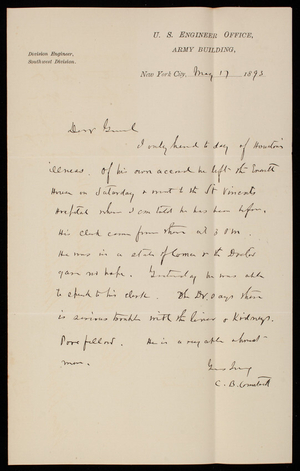 U. S. ENGINEER OFFICE,
ARMY BUILDING,
Division Engineer,
Southwest Division.
New York City, May 17 1893
Dear General
I only heard to day of Houston's
illness. Of his own accord he left the Everett
House on Saturday & went to the St Vincents
Hospital where I am told he has been before.
His clerk came from there at 3 P.M.
He was in a state of Coma & the Doctor
gave no hope. Yesterday he was able
to speak to his clerk. The Dr. says there
is serious trouble with the liver & Kidneys.
Poor fellow. He is a very able & honest
man.
Yours truly
C. B. Comstock